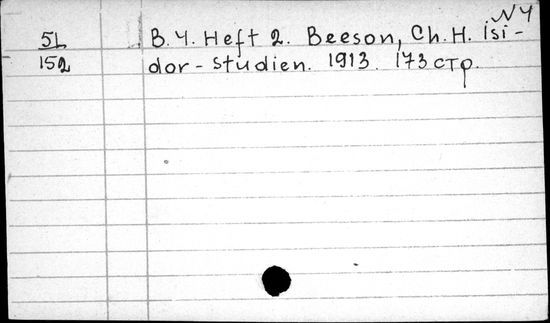 N 4
51 B. 4. Heft 2. Beeson, Ch. H. Isi-
152 dor-studien. 1913. 173 стр.